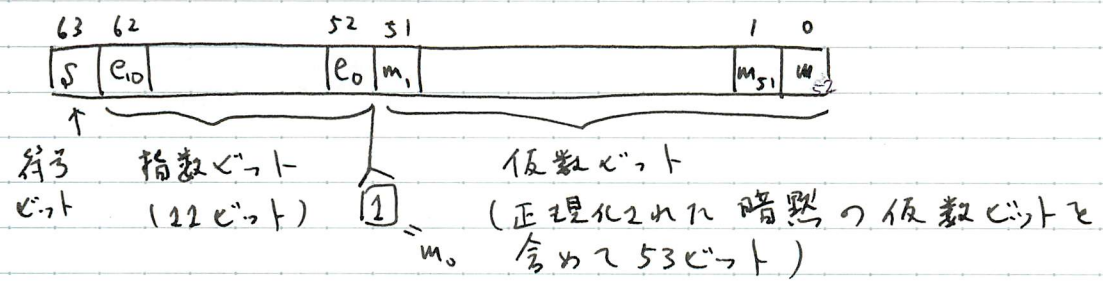 63 62 52 51 1 0
S e10 e0 m1 m51 m52
↑
符号 指数ビット 仮数ビット
ビット (11ビット) 1 (正規化された暗黙の仮数ビットを
= m0 含めて53ビット)